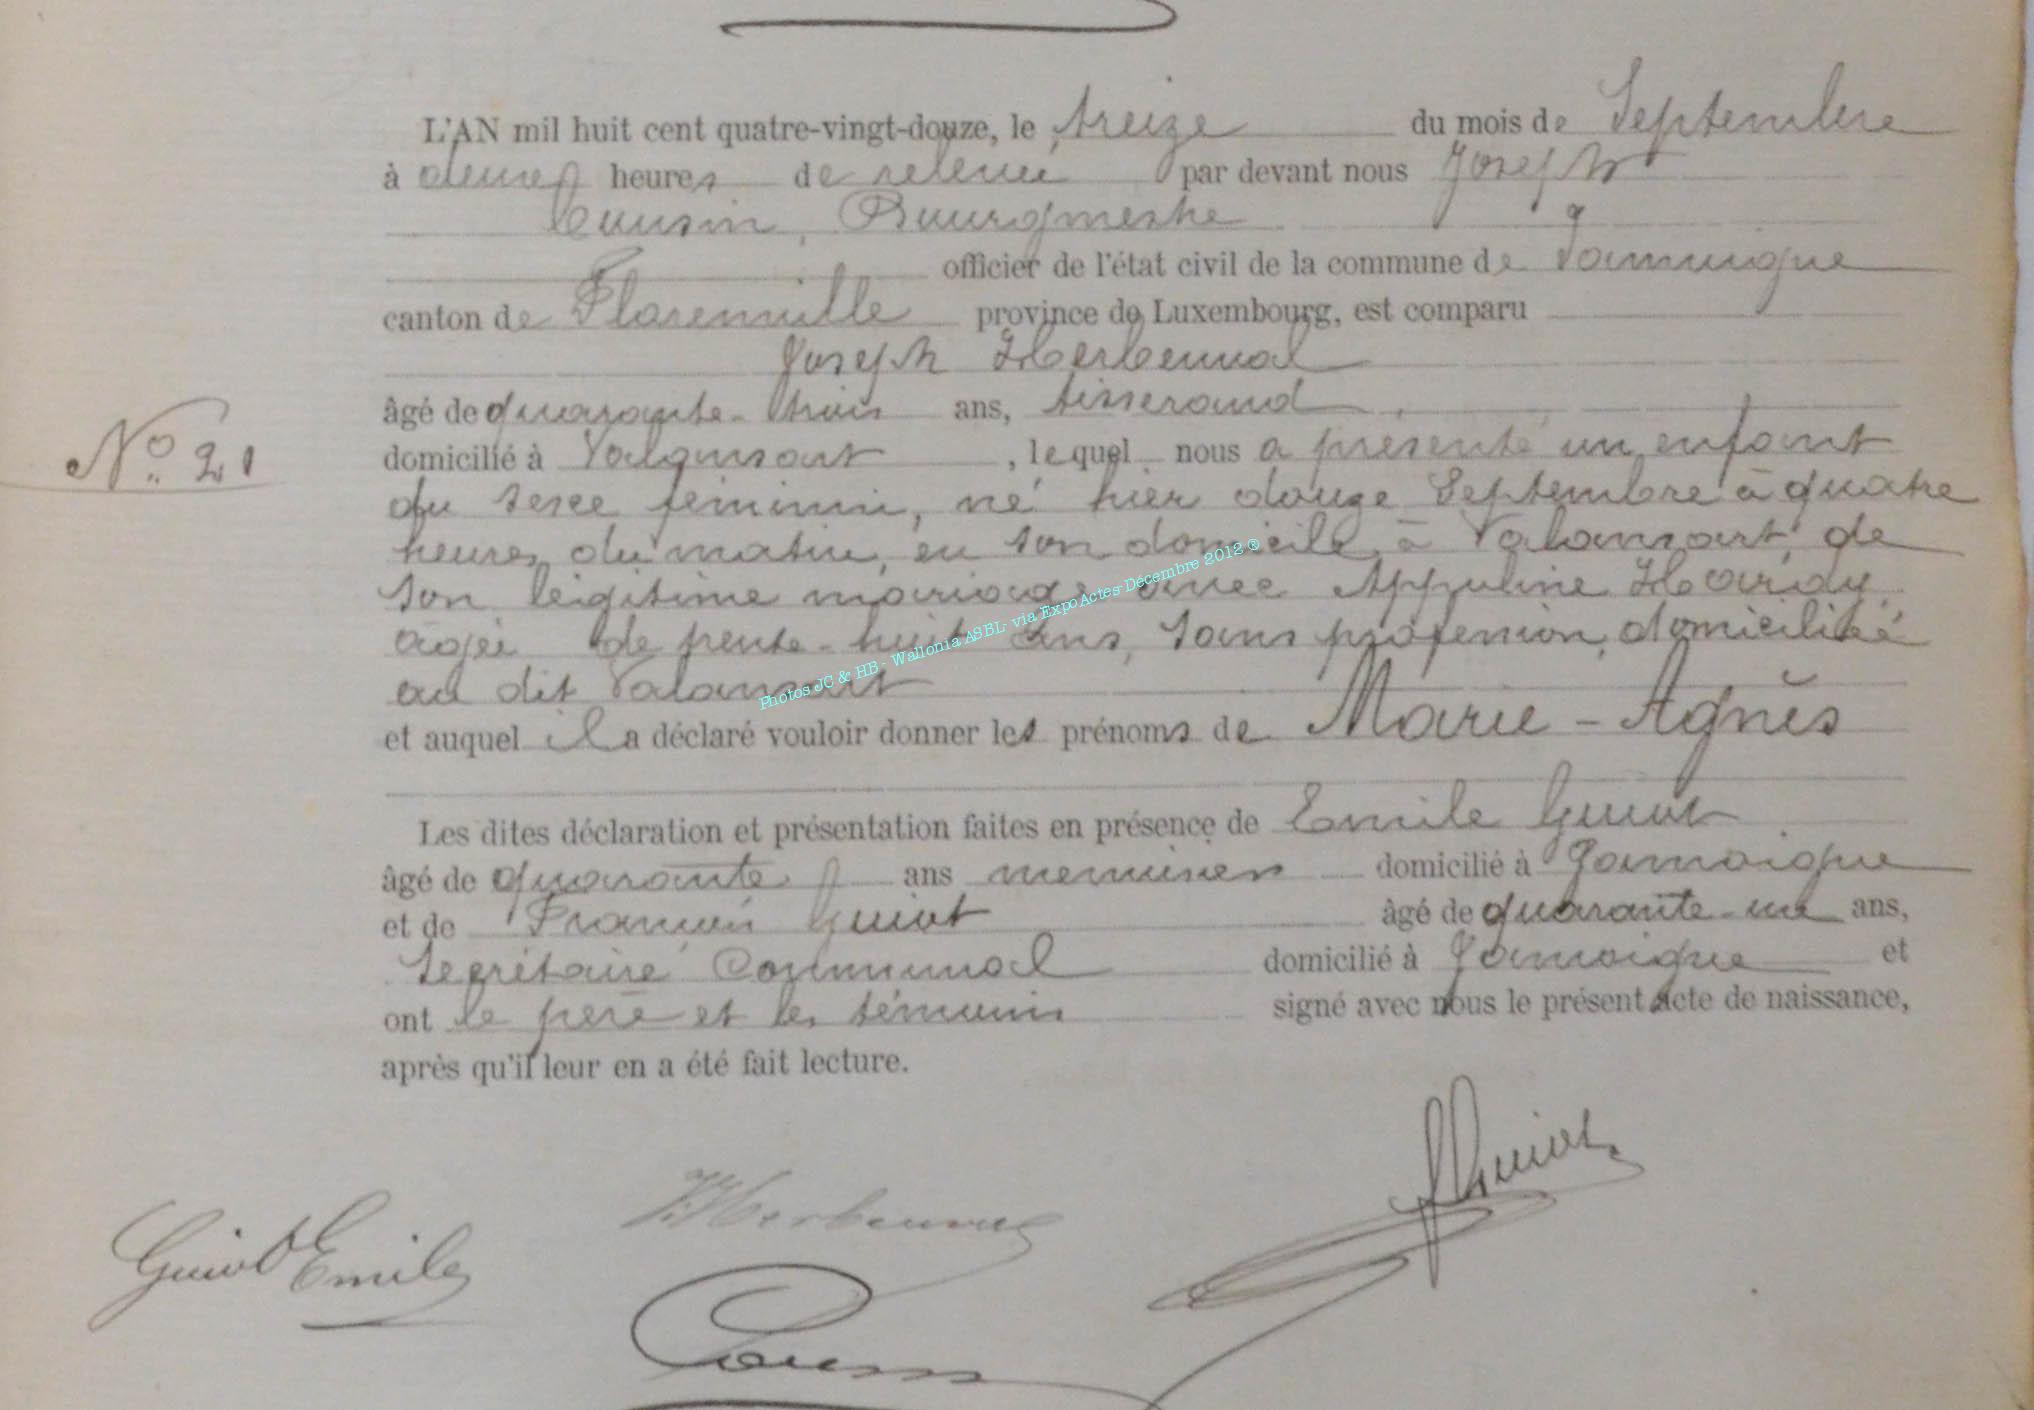 L'AN mil huit cent quatre-vingt-douze, le treize du mois de Septembre
à deux heures de relevée par devant nous Joseph
Cousin, Bourgmestre
officier de l'état civil de la commune de Jamoigne
canton de Florenville province de Luxembourg, est comparu
Joseph Herbeuval
âgé de quarante-trois ans, tisserand
N° 21
domicilié à Valansart, lequel nous a présenté un enfant
du sexe féminin, né hier douze Septembre à quatre
heures du matin, en son domicile à Valansart, de
son légitime mariage avec Appoline Hardy
agée de trente-huit ans, sans profession, domiciliée
au dit Valansart
et auquel il a déclaré vouloir donner les prénoms de Marie-Agnès
Les dites déclaration et présentation faites en présence de Emile Guiot
âgé de quarante ans menuisier domicilié à Jamoigne
et de François Guiot âgé de quarante-un ans,
Secrétaire Communal domicilié à Jamoigne et
ont le père et les témoins signé avec nous le présent acte de naissance,
après qu'il leur en a été fait lecture.
Guiot Emile
J. Herbeuval
F Guiot
Cousin
Photos JC & HB - Wallonia ASBL- via ExpoActes-Décembre 2012 ®